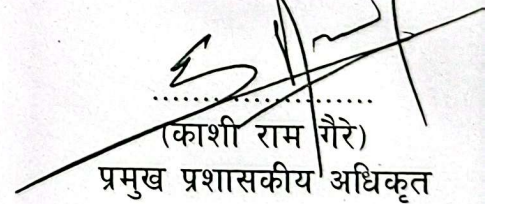 .........................
(काशी राम गैरे)
प्रमुख प्रशासकीय अधिकृत